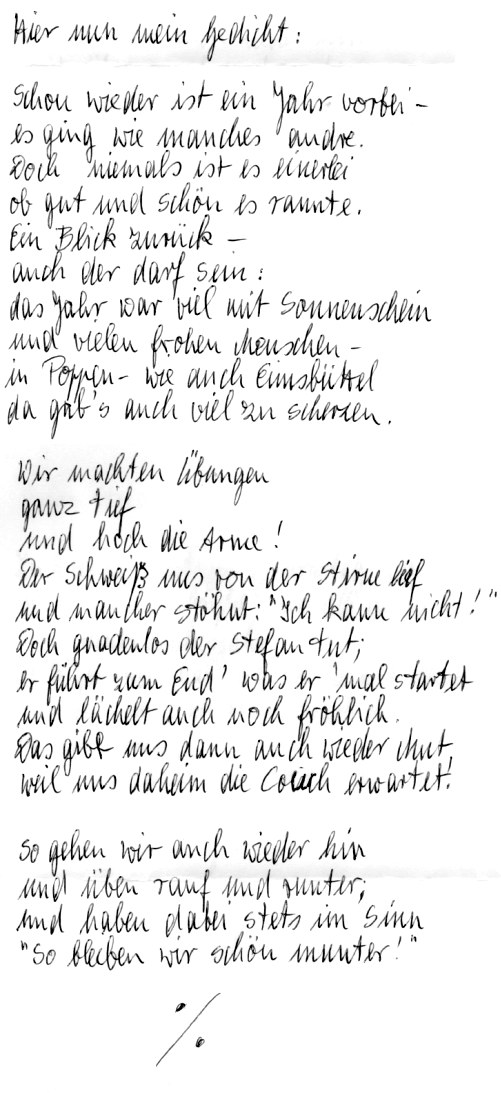 Hier nun mein Gedicht:
Schon wieder ist ein Jahr vorbei –
es ging wie manches andre.
Doch niemals ist es einerlei
ob gut und schön es rannte.
Ein Blick zurück –
auch der darf sein:
das Jahr war viel mit Sonnenschein
und vielen frohen Menschen –
in Poppen- wie auch Eimsbüttel
da gab's auch viel zu scherzen.
Wir machten Übungen
ganz tief
und hoch die Arme!
Der Schweiß uns von der Stirne lief
und mancher stöhnt: "Ich kann nicht!"
Doch gnadenlos der Stefan tut;
er führt zum End' was er 'mal startet
und lächelt auch noch fröhlich.
Das gibt uns dann auch wieder Mut,
weil uns daheim die Couch erwartet!
So gehen wir auch wieder hin
und üben rauf und runter;
und haben dabei stets im Sinn
"So bleiben wir schön munter!"
%